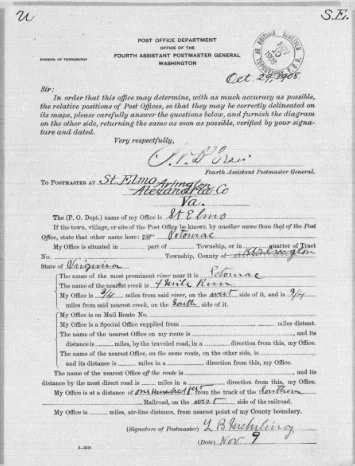 U S.E.
POST OFFICE DEPARTMENT
OFFICE OF THE
FOURTH ASSISTANT POSTMASTER GENERAL
WASHINGTON
DIVISION OF TOPOGRAPHY
Oct. 29, 1908.
Sir:
In order that this office may determine, with as much accuracy as possible,
the relative positions of Post Offices, so that they may be correctly delineated on
its maps, please carefully answer the questions below, and furnish the diagram
on the other side, returning the same as soon as possible, verified by your signa-
ture and dated.
Very respectfully,
Fourth Assistant Postmaster General.
TO POSTMASTER AT St. Elmo Arlington
Alexandria Co
Va.
The (P. O. Dept.) name of my Office is St Elmo
If the town, village, or site of the Post Office be known by another name than that of the Post
Office, state that other name here: Potomac
My Office is situated in part of Township, or in quarter of Tract
No. Township, County of Arlington
State of Virginia
The name of the most prominent river near it is Potomac
The name of the nearest creek is 4 Mile Run
My Office is 3/4 miles from said river, on the west side of it, and 3/4
miles from said nearest creek, on the South side of it.
My Office is on Mail Route No.
My Office is a Special Office supplied from miles distant.
The name of the nearest Office on my route is , and its
distance is miles, by the traveled road, in a direction from this, my Office.
The name of the nearest Office, on the same route, on the other side, is
and its distance is miles in a direction from this, my Office.
The name of the nearest Office off the route is , and its
distance by the most direct road is miles in a direction from this, my Office.
My Office is at a distance of one hundred feet from the track of the Southern
Railroad, on the west side of the railroad.
My Office is miles, air-line distance, from nearest point of my County boundary.
(Signature of Postmaster)
(Date) Nov 9